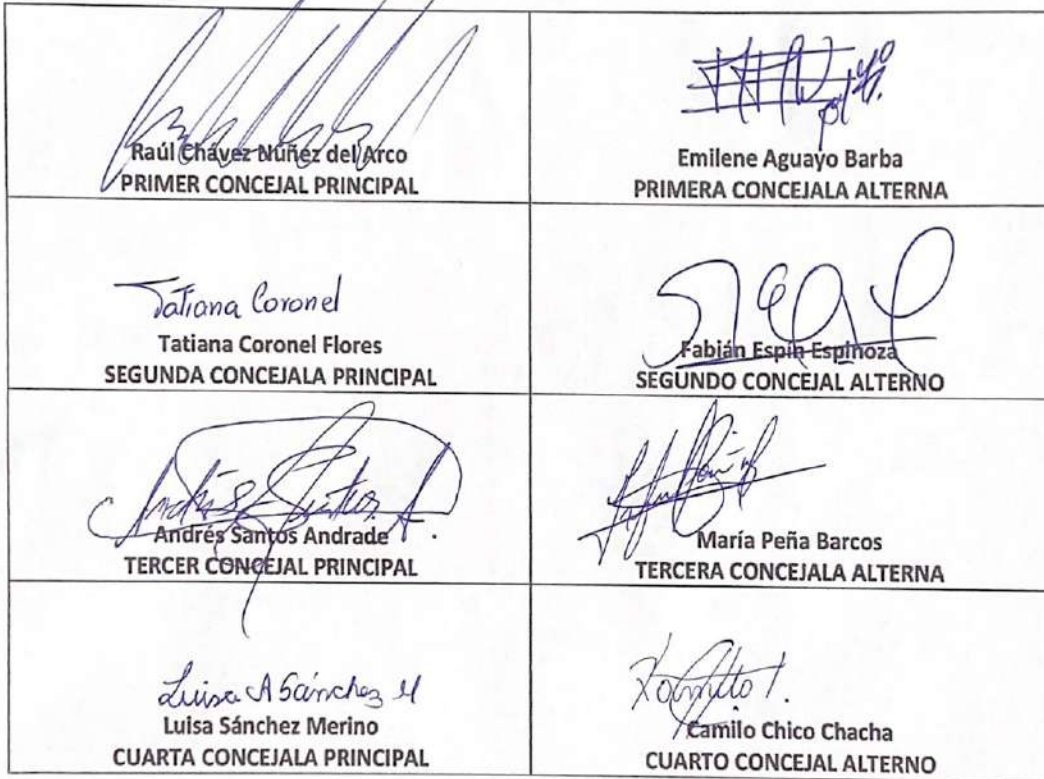 Raúl Chávez Núñez del Arco
PRIMER CONCEJAL PRINCIPAL
Emilene Aguayo Barba
PRIMERA CONCEJALA ALTERNA
Tatiana Coronel
Tatiana Coronel Flores
SEGUNDA CONCEJALA PRINCIPAL
Fabián Espín Espinoza
SEGUNDO CONCEJAL ALTERNO
Andrés Santos A.
Andrés Santos Andrade
TERCER CONCEJAL PRINCIPAL
María Peña Barcos
TERCERA CONCEJALA ALTERNA
Luisa A Sánchez M
Luisa Sánchez Merino
CUARTA CONCEJALA PRINCIPAL
Camilo Chico Chacha
CUARTO CONCEJAL ALTERNO